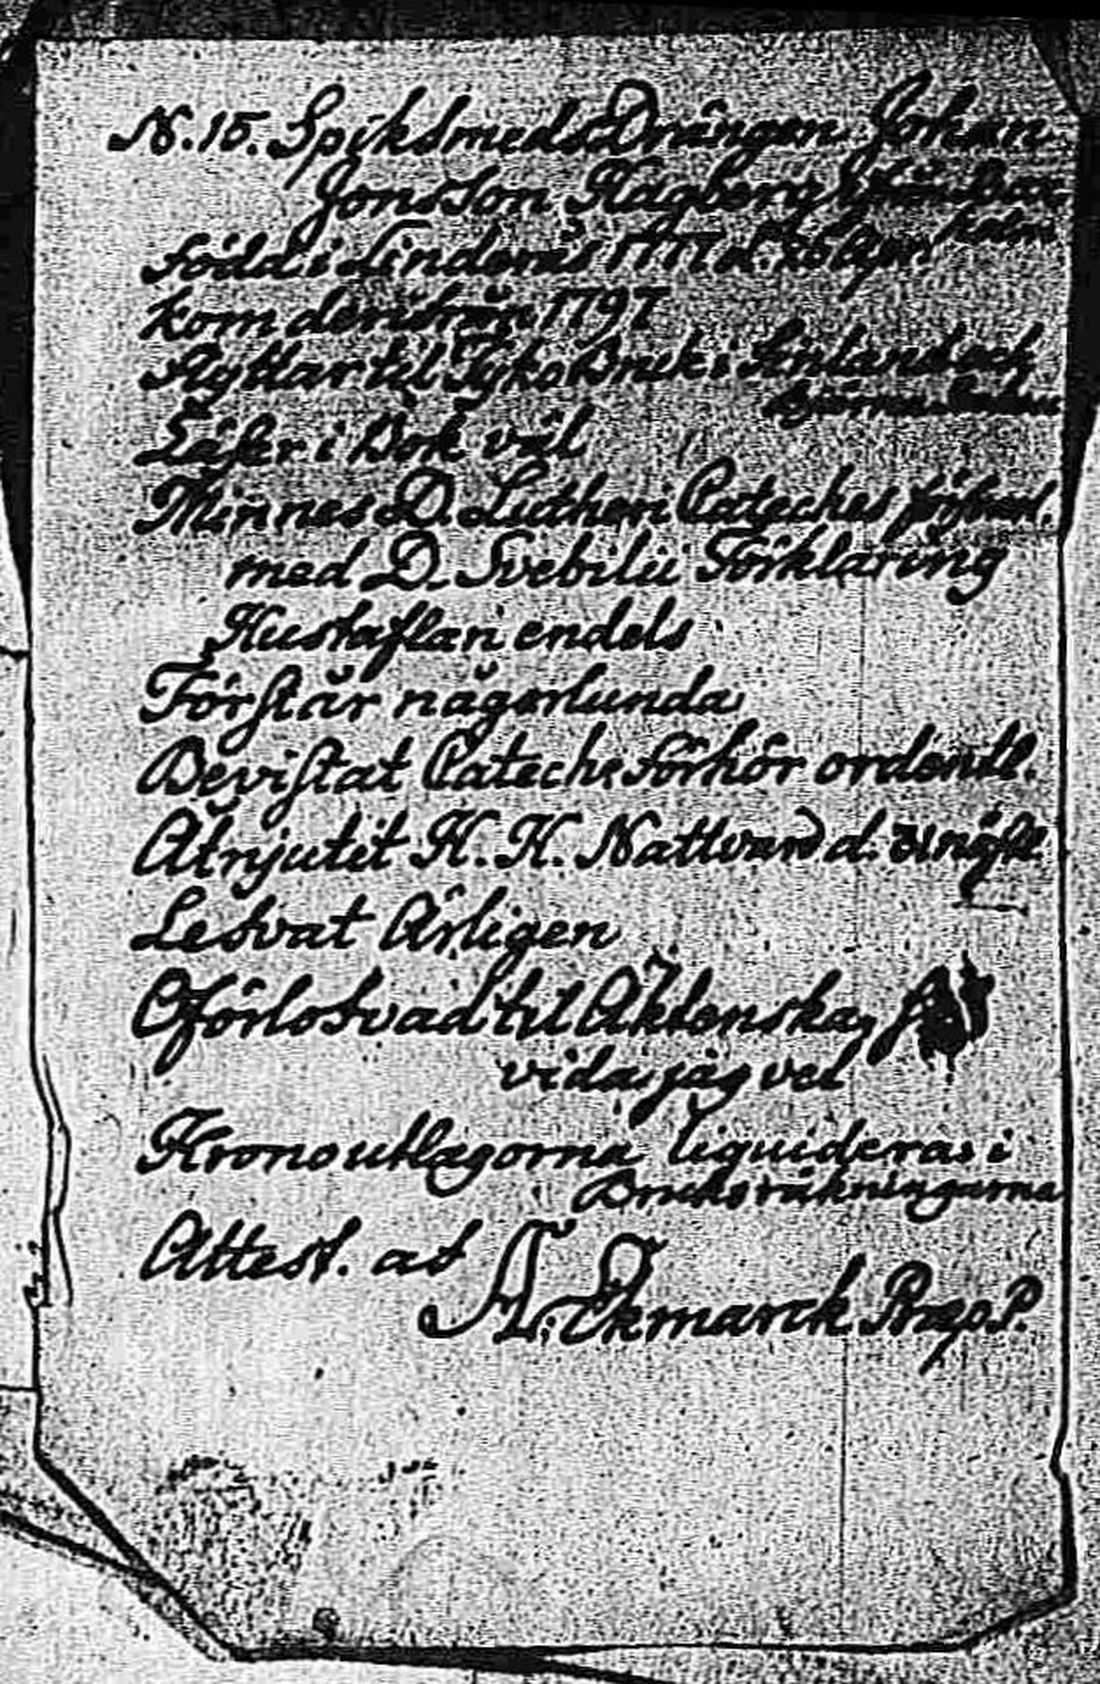 N. 15. SpiksmedsDrängen Johan
Jonsson Hagberg från
född i Linderås 1777 d. 26 Apr.
kom derifrån 1797
flyttar til Tyko Bruk i Finland och
Läser i Bok väl
Minnes D. Lutheri Cateches
med D. Svebilii Förklaring
Hustaflan endels
Förstår någorlunda
Bevistat Catech. Förhör ordentl.
Åtnjutit H. H. Nattvard d.
Lefvat Ärligen
Oförlofvad til Äktenskap så
vida jag vet
Kronoutlagorna liquideras i
Bruksräkningarna
Attest. at
A. L. Ekmarck Præp. P.